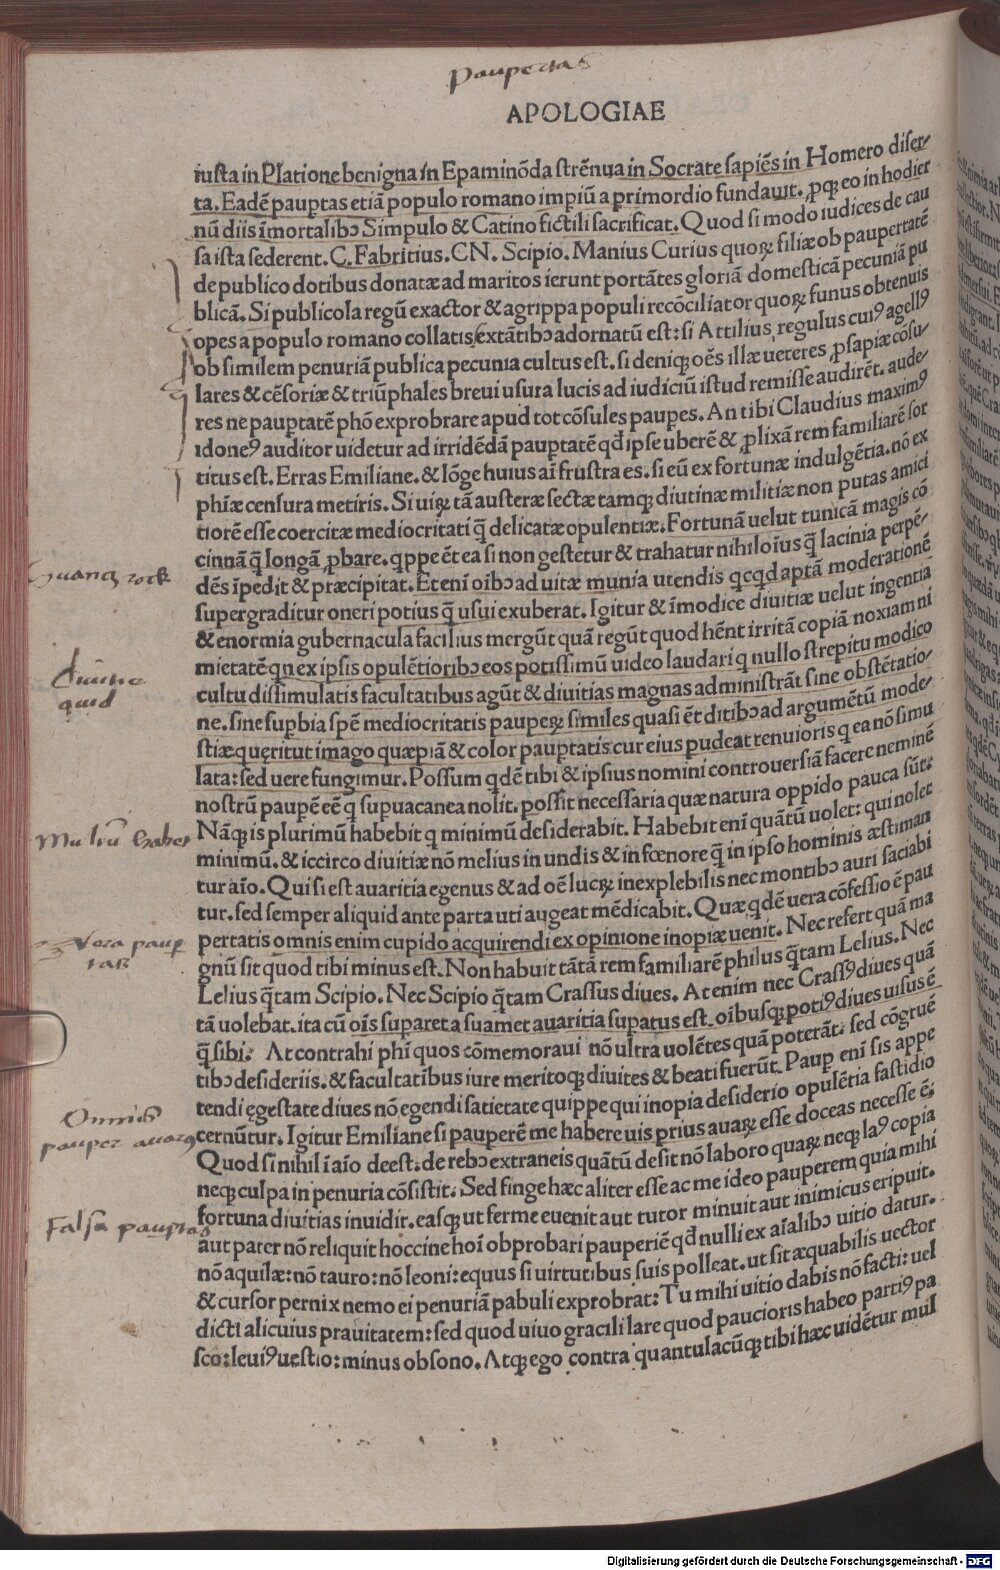 Paupertas
APOLOGIAE
iusta in Platione benigna in Epaminōda strēnua in Socrate sapiēs in Homero diser⸗
ta. Eadē pauꝑtas etiā populo romano impiū a primordio fundauit. ꝓqꝫ eo in hodier
nū diis īmortalibꝰ Simpulo & Catino fictili sacrificat. Quod si modo iudices de cau
sa ista sederent. C. Fabritius. CN. Scipio. Manius Curius quoꝝ filiæ ob paupertatē
de publico dotibus donatæ ad maritos ierunt portātes gloriā domesticā pecuniā pu
blicā. Si publicola regū exactor & agrippa populi recōciliator quoꝝ funus obtenuis
opes a populo romano collatis extātibꝰ adornatū est: si Attilius regulus cuiꝰ agellꝰ
ob similem penuriā publica pecunia cultus est. si deniqꝫ oēs illæ ueteres ꝓsapiæ cōsu⸗
lares & cēsoriæ & triūphales breui usura lucis ad iudiciū istud remisse audirēt. aude⸗
res ne pauꝑtatē phō exprobrare apud tot cōsules paupes. An tibi Claudius maximꝰ
idoneꝰ auditor uidetur ad irridēdā pauꝑtatē qđ ipse uberē & ꝓlixā rem familiarē sor
titus est. Erras Emiliane. & lōge huius aī frustra es. si eū ex fortunæ indulgētia. nō ex
phiæ censura metiris. Si uiꝝ tā austeræ sectæ tamqꝫ diutinæ militiæ non putas amici
tiorē esse coercitæ mediocritati q̄ delicatæ opulentiæ. Fortunā uelut tunicā magis cō
cinnā q̄ longā ꝓbare. qppe ēt ea si non gestetur & trahatur nihiloīus q̄ lacinia perpē⸗
dēs īpedit & præcipitat. Etenī oībꝰ ad uitæ munia utendis qcqd aptā moderationē
supergraditur oneri potius q̄ usui exuberat. Igitur & īmodice diuitiæ uelut ingentia
& enormia gubernacula facilius mergūt quā regūt quod hēnt irritā copiā noxiam ni
mietatē qn ex ipsis opulētioribꝰ eos potissimū uideo laudari q nullo strepitu modico
cultu dissimulatis facultatibus agūt & diuitias magnas administrāt sine obstētatio⸗
ne. sine suꝑbia spē mediocritatis pauperꝝ similes quasi ēt ditibꝰ ad argumētū mode⸗
stiæ quęritur imago quæpiā & color pauꝑtatis cur eius pudeat tenuioris q ea nō simu
lata: sed uere fungimur. Possum qdē tibi & ipsius nomini controuersiā facere neminē
nostrū paupē eē q suꝑuacanea nolit. possit necessaria quæ natura oppido pauca sūt:
Nāqꝫ is plurimū habebit q minimū desiderabit. Habebit enī quātū uolet: qui nolet
minimū. & iccirco diuitiæ nō melius in undis & in fœnore q̄ in ipso hominis æstiman
tur aīo. Qui si est auaritia egenus & ad oē lucꝝ inexplebilis nec montibꝰ auri saciabi
tur. sed semper aliquid ante parta uti augeat mēdicabit. Quæ qdē uera cōfessio ē pau
pertatis omnis enim cupido acquirendi ex opinione inopiæ uenit. Nec refert quā ma
gnū sit quod tibi minus est. Non habuit tātā rem familiarē philus q̄tam Lelius. Nec
Lelius q̄tam Scipio. Nec Scipio q̄tam Crassus diues. At enim nec Crassꝰ diues quā
tā uolebat. ita cū oīs suparet a suamet auaritia supatus est. oībusqꝫ potiꝰ diues uisus ē
q̄ sibi: At contra hi phī quos cōmemoraui nō ultra uolētes quā poterāt: sed cōgruē
tibꝰ desideriis. & facultatibus iure meritoqꝫ diuites & beati fuerūt. Paup enī sis appe
tendi ęgestate diues nō egendi satietate quippe qui inopia desiderio opulētia fastidio
cernūtur. Igitur Emiliane si pauperē me habere uis prius auaꝝ esse doceas necesse ē:
Quod si nihil ī aīo deest: de rebꝰ extraneis quātū desit nō laboro quaꝝ neqꝫ laꝰ copia
neqꝫ culpa in penuria cōsistit. Sed finge hæc aliter esse ac me ideo pauperem quia mihi
fortuna diuitias inuidit. easqꝫ ut ferme euenit aut tutor minuit aut inimicus eripuit.
aut pater nō reliquit hoccine hoī obprobari pauperiē qđ nulli ex aīalibꝰ uitio datur.
nō aquilæ: nō tauro: nō leoni: equus si uirtutibus suis polleat. ut sit æquabilis uector
& cursor pernix nemo ei penuriā pabuli exprobrat: Tu mihi uitio dabis nō facti: uel
dicti alicuius prauitatem: sed quod uiuo gracili lare quod paucioris habeo partiꝰ pa
sco: leuiꝰ uestio: minus obsono. Atqꝫ ego contra quantulacūqꝫ tibi hæc uidētur mul
rock
Diuitie
quid
Multū habet
Vera paup
tas
Omnis
pauper auarꝰ
Falsa pauptas
Digitalisierung gefördert durch die Deutsche Forschungsgemeinschaft - DFG